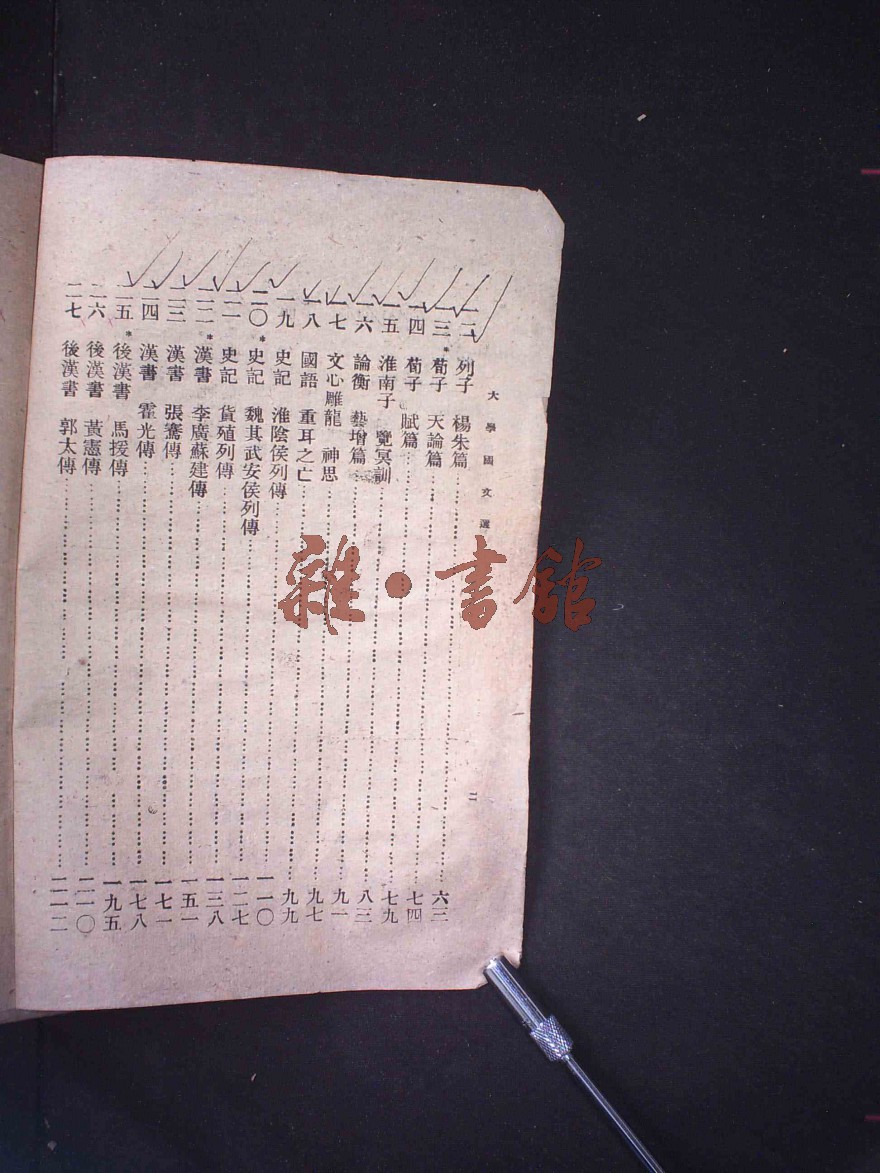 大學國文選
二
一二 列子 楊朱篇……六三
*一三 荀子 天論篇……七四
一四 荀子 賦篇……七九
一五 淮南子 覽冥訓……八三
一六 論衡 藝增篇……九一
一七 文心雕龍 神思……九七
一八 國語 重耳之亡……九九
一九 史記 淮陰侯列傳……一一〇
*二〇 史記 魏其武安侯列傳……一二七
二一 史記 貨殖列傳……一三八
*二二 漢書 李廣蘇建傳……一五一
二三 漢書 張騫傳……一七一
二四 漢書 霍光傳……一七八
*二五 後漢書 馬援傳……一九五
二六 後漢書 黃憲傳……二一〇
二七 後漢書 郭太傳……二一二
雜·書館